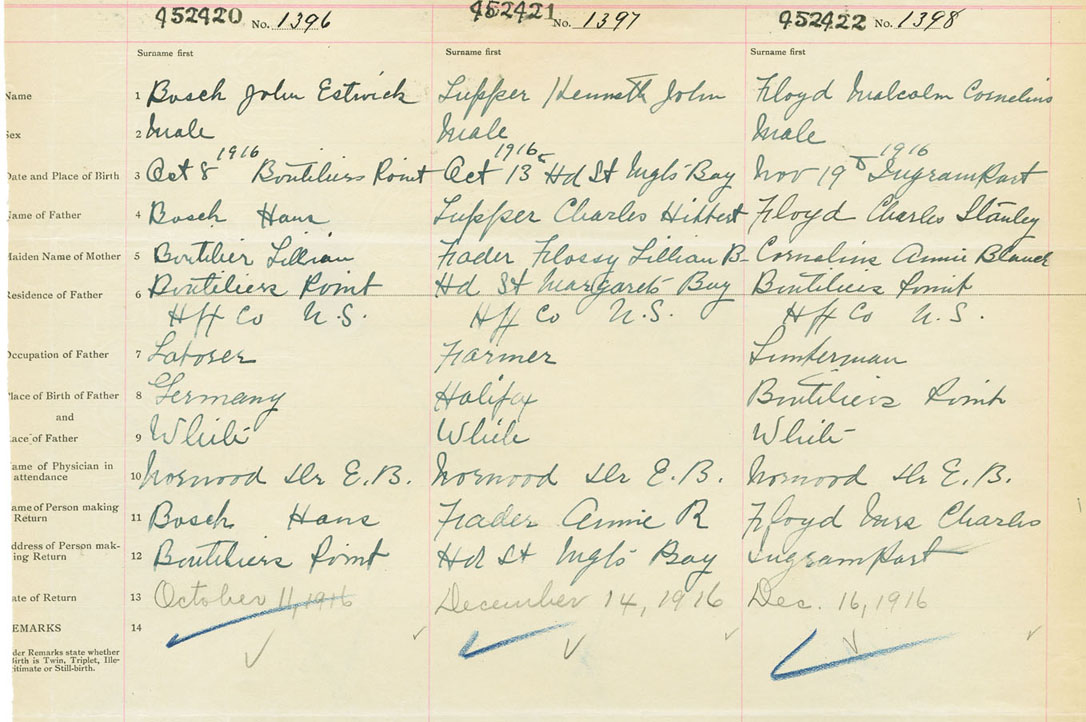 452420 No. 1396 452421 No. 1397 452422 No. 1398
Surname first Surname first Surname first
Name 1 Bosch John Estwick Tupper Kenneth John Floyd Malcolm Cornelius
Sex 2 Male Male Male
Date and Place of Birth 3 Oct 8 1916 Boutiliers Point Oct 13 1916 Hd St Mgts Bay Nov 19 1916 Ingram Port
Name of Father 4 Bosch Hans Tupper Charles Hibbert Floyd Charles Stanley
Maiden Name of Mother 5 Boutilier Lillian Fader Flossy Lillian B. Cornelius Annie Blanch
Residence of Father 6 Boutiliers Point Hd St Margarets Bay Boutiliers Point
Hfx Co N.S. Hfx Co N.S. Hfx Co N.S.
Occupation of Father 7 Laborer Farmer Lumberman
Place of Birth of Father 8 Germany Halifax Boutiliers Point
and
Race of Father 9 White White White
Name of Physician in attendance 10 Norwood Dr E.B. Norwood Dr E.B. Norwood Dr E.B.
Name of Person making Return 11 Bosch Hans Fader Annie R Floyd Mrs Charles
Address of Person making Return 12 Boutiliers Point Hd St Mgts Bay Ingram Port
Date of Return 13 October 11, 1916 December 14, 1916 Dec. 16, 1916
REMARKS 14
Under Remarks state whether
Birth is Twin, Triplet, Ille-
gitimate or Still-birth.